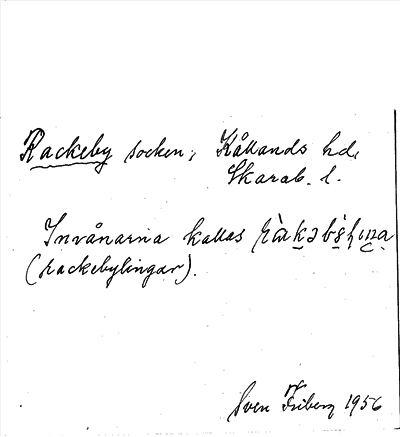 Rackeby socken, Kållands hd.
Skarab. l.
Invånarna kallas
(rackebylingar).
Sven Friberg 1956